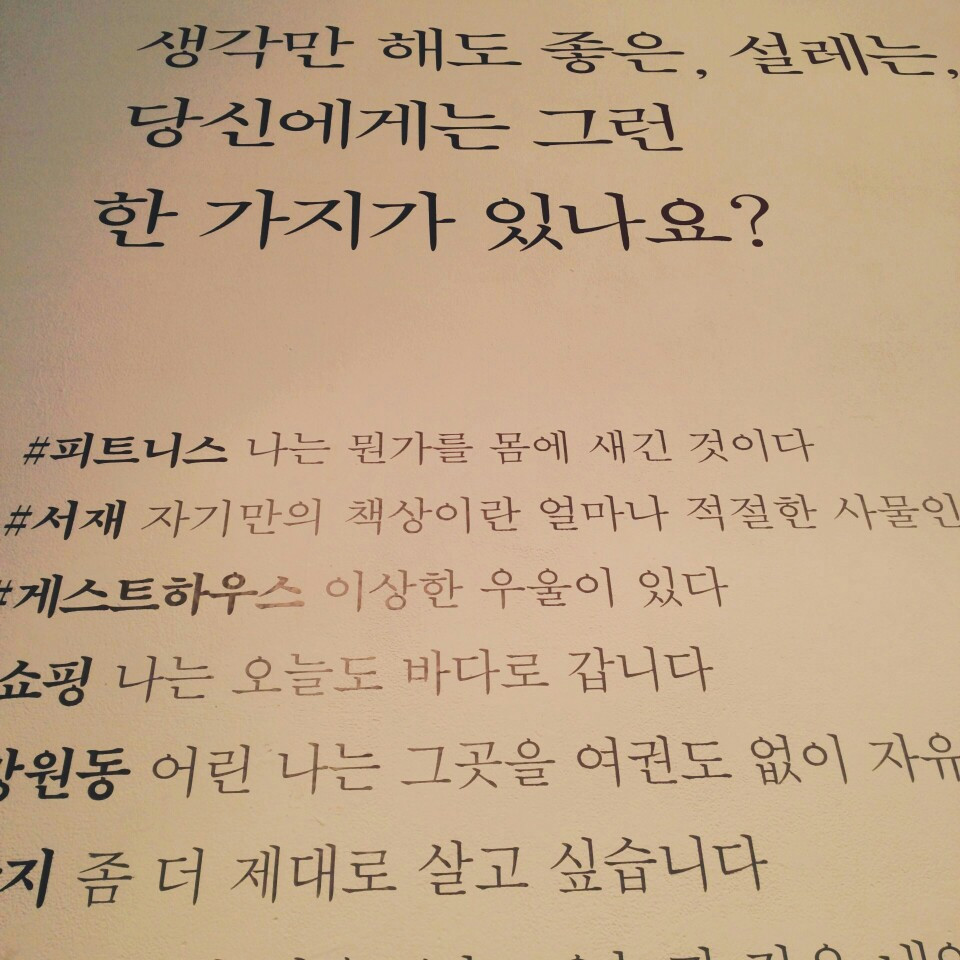 생각만 해도 좋은, 설레는,
당신에게는 그런
한 가지가 있나요?
#피트니스 나는 뭔가를 몸에 새긴 것이다
#서재 자기만의 책상이란 얼마나 적절한 사물인
#게스트하우스 이상한 우울이 있다
쇼핑 나는 오늘도 바다로 갑니다
망원동 어린 나는 그곳을 여권도 없이 자유
지 좀 더 제대로 살고 싶습니다